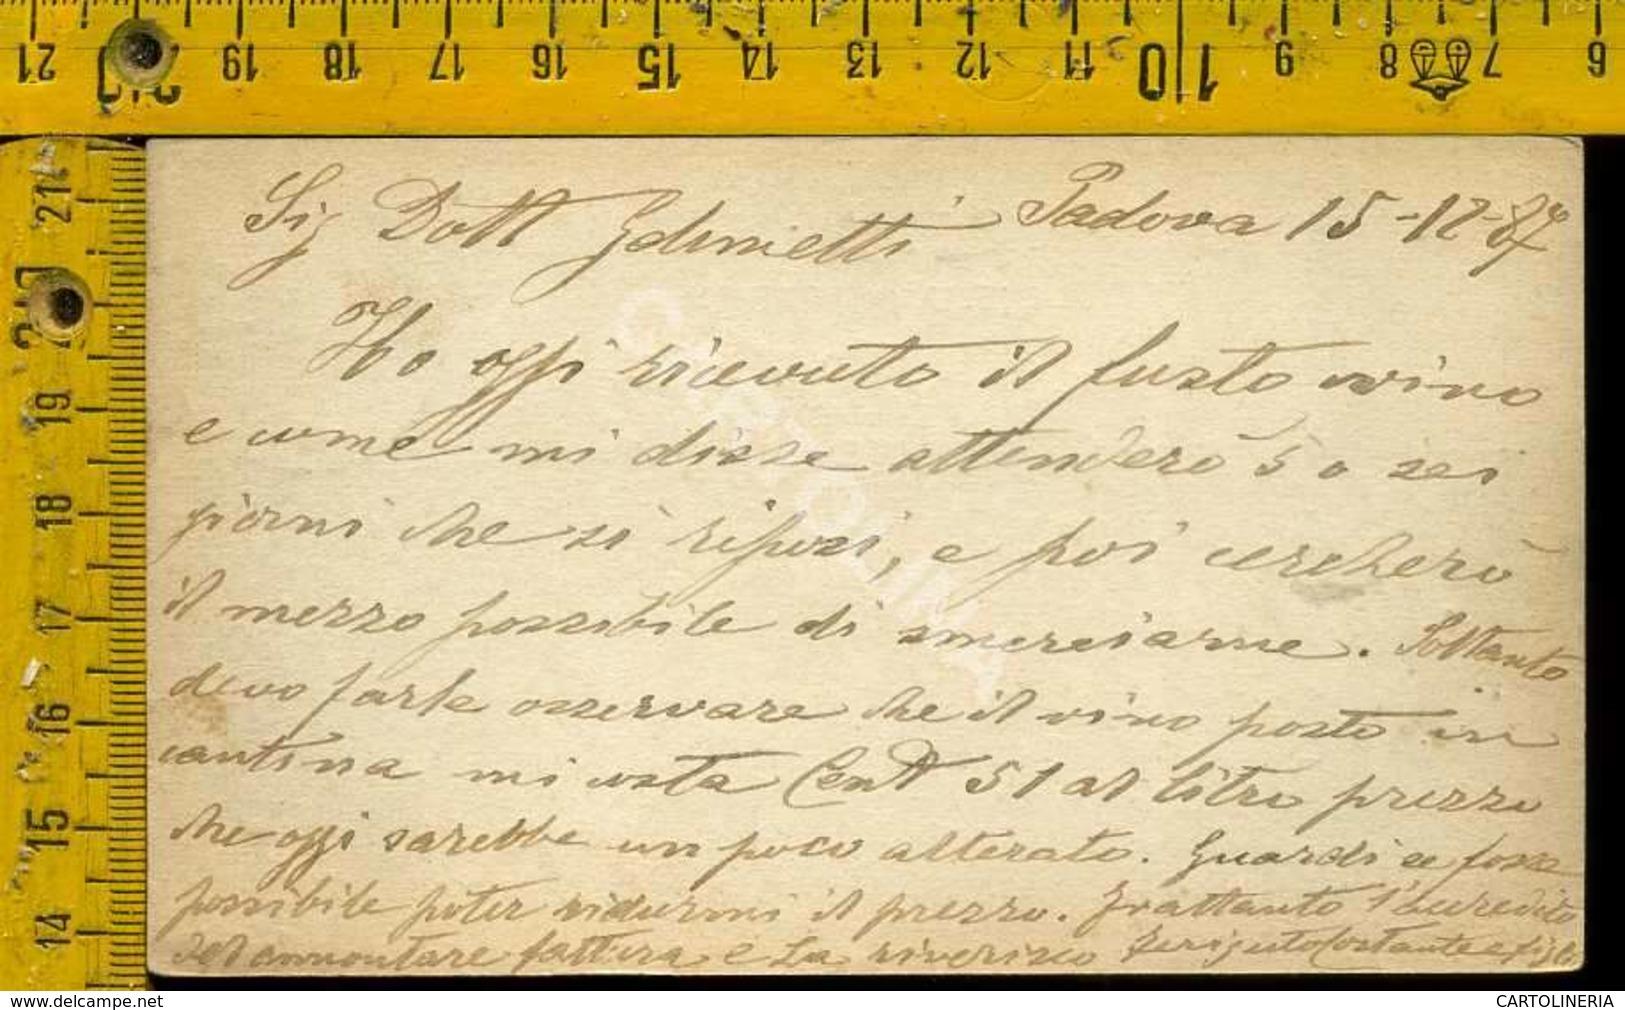 21 20 19 18 17 16 15 14 13 12 11 10 9 8 7 6
21
20
19
18
17
16
15
14
Sig Dott Padova 15-12-87
Ho oggi ricevuto il fusto vino
e come mi disse attenderò 5 o sei
giorni che si riposi, e poi cercherò
il mezzo possibile di smerciarne. Soltanto
devo farle osservare che il vino posto in
cantina mi costa Cent 51 al litro prezzo
che oggi sarebbe un poco alterato. Guardi se fosse
possibile poter ridurmi il prezzo. Frattanto l'accredito
dell'ammontare fattura e La riverisco Costante e figli
CARTOLINERIA
www.delcampe.net
CARTOLINERIA